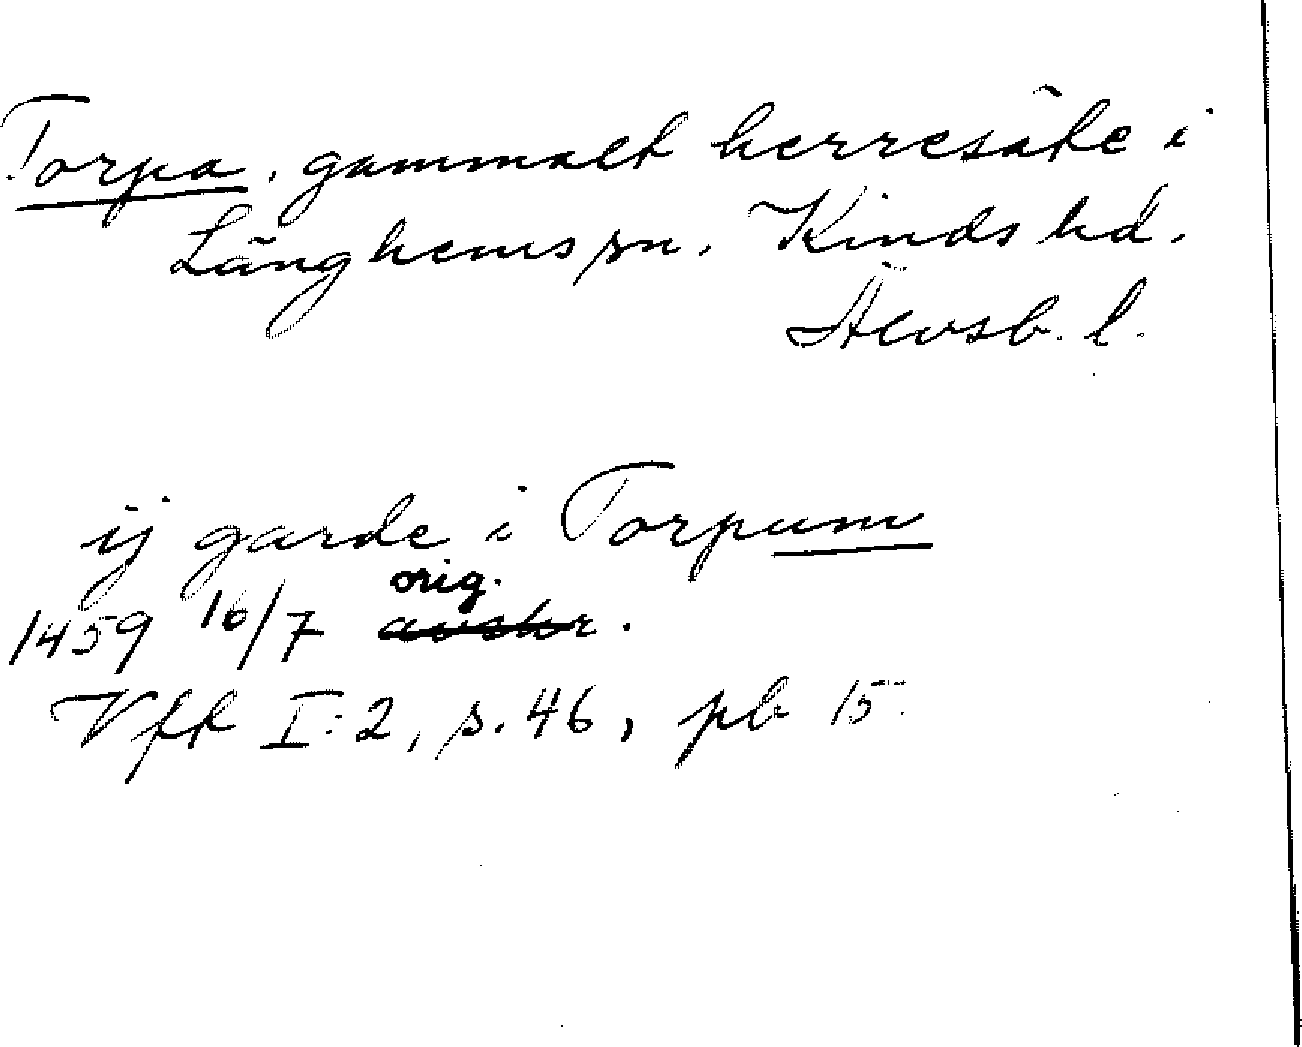 Torpa, gammalt herresäte i
Länghems sn. Kinds hd.
Älvsb. l.
ij garde i Torpum
orig.
1459 16/7 avskr.
Vff I:2, s. 46, pb 15.